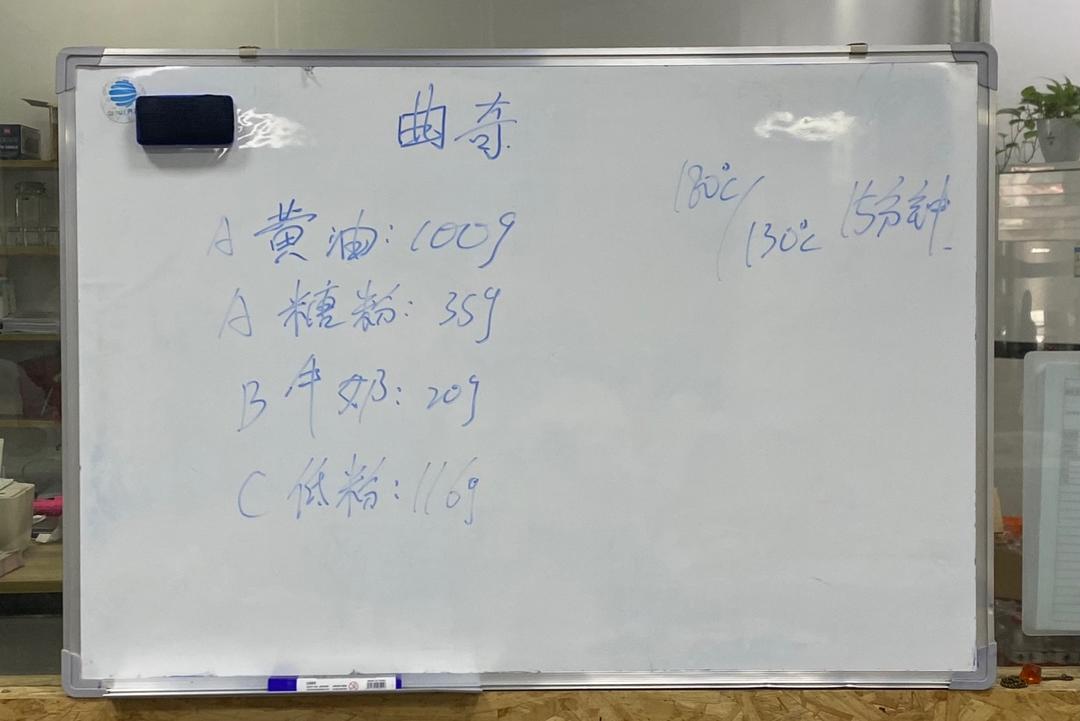 曲奇
A 黄油：100g
A 糖粉：35g
B 牛奶：20g
C 低粉：116g
180℃/130℃ 15分钟